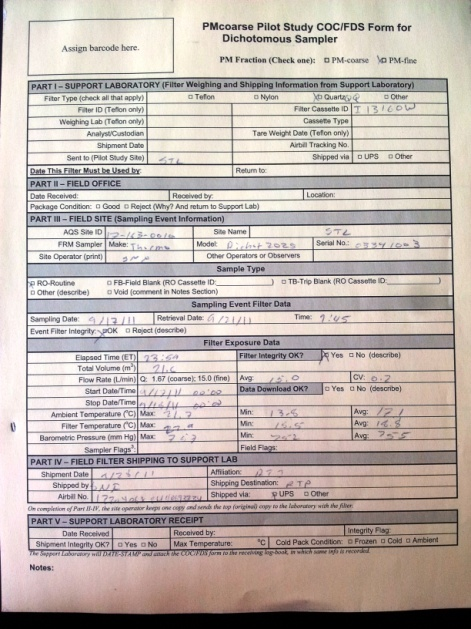 PMcoarse Pilot Study COC/FDS Form for
Dichotomous Sampler
Assign barcode here.
PM Fraction (Check one): □ PM-coarse □ PM-fine
PART I – SUPPORT LABORATORY (Filter Weighing and Shipping Information from Support Laboratory)
Filter Type (check all that apply) □ Teflon □ Nylon □ Quartz □ Other
Filter ID (Teflon only) Filter Cassette ID I13160W
Weighing Lab (Teflon only) Cassette Type
Analyst/Custodian Tare Weight Date (Teflon only)
Shipment Date Airbill Tracking No.
Sent to (Pilot Study Site) STL Shipped via □ UPS □ Other
Date This Filter Must be Used by: Return to:
PART II – FIELD OFFICE
Date Received: Received by: Location:
Package Condition: □ Good □ Reject (Why? And return to Support Lab)
PART III – FIELD SITE (Sampling Event Information)
AQS Site ID Site Name STL
FRM Sampler Make: Thermo Model: Dichot 2025 Serial No.:
Site Operator (print) Other Operators or Observers
Sample Type
RO-Routine □ FB-Field Blank (RO Cassette ID: ) □ TB-Trip Blank (RO Cassette ID: )
□ Other (describe) □ Void (comment in Notes Section)
Sampling Event Filter Data
Sampling Date: 9/17/11 Retrieval Date: 9/21/11 Time: 9:45
Event Filter Integrity: OK □ Reject (describe)
Filter Exposure Data
Elapsed Time (ET) Filter Integrity OK? Yes □ No (describe)
Total Volume (m³) 21.6
Flow Rate (L/min) Q: 1.67 (coarse); 15.0 (fine) Avg: 15.0 CV: 0.2
Start Date/Time 00:00 Data Download OK? □ Yes □ No (describe)
Stop Date/Time 00:00
Ambient Temperature (°C) Max: 21.7 Min: 13.5 Avg: 17.1
Filter Temperature (°C) Max: Min: 15.5 Avg: 18.8
Barometric Pressure (mm Hg) Max: 757 Min: 752 Avg: 755
Sampler Flags Field Flags:
PART IV – FIELD FILTER SHIPPING TO SUPPORT LAB
Shipment Date Affiliation:
Shipped by Shipping Destination: RTP
Airbill No. Shipped via: UPS □ Other
On completion of Part II-IV, the site operator keeps one copy and sends the top (original) copy to the laboratory with the filter.
PART V – SUPPORT LABORATORY RECEIPT
Date Received Received by: Integrity Flag:
Shipment Integrity OK? □ Yes □ No Max Temperature: °C Cold Pack Condition: □ Frozen □ Cold □ Ambient
The Support Laboratory will DATE-STAMP and attach the COC/FDS form to the receiving log-book, in which same info is recorded.
Notes: